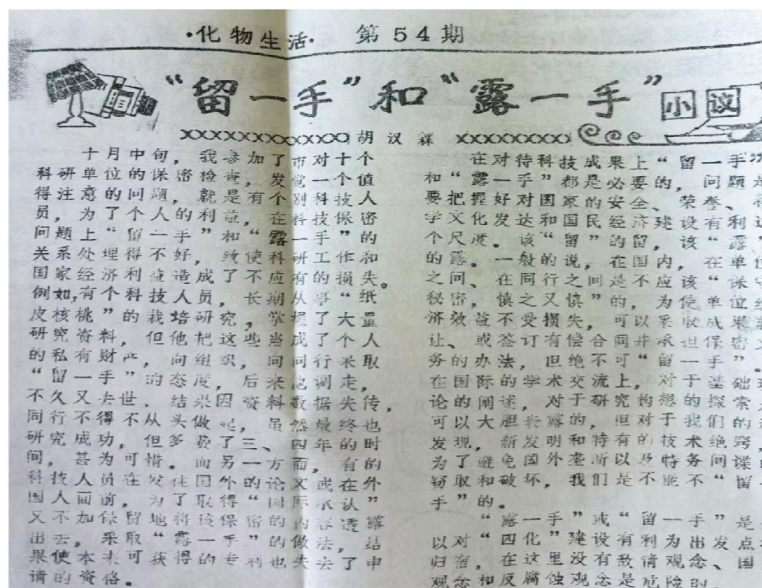 ·化物生活· 第54期
“留一手”和“露一手”小议
胡汉霖
十月中旬，我参加了市对十个
科研单位的保密检查，发觉一个值
得注意的问题，就是有个别科技人
员，为了个人的利益，在科技保密
问题上“留一手”和“露一手”的
关系处理得不好，致使科研工作和
国家经济利益造成了不应有的损失。
例如，有个科技人员，长期从事“纸
皮核桃”的栽培研究，掌握了大量
研究资料，但他把这些当成了个人
的私有财产，向组织，向同行采取
“留一手”的态度，后来他调走，
不久又去世，结果因资料数据失传，
同行不得不从头做起，虽然最终也
研究成功，但多费了三、四年的时
间，甚为可惜。而另一方面，有的
科技人员在发往国外的论文或在外
国人面前，为了取得“国际承认”
又不加保留地将该保密的内容透露
出去，采取“露一手”的做法，结
果使本来可获得的专利也失去了申
请的资格。
在对待科技成果上“留一手”
和“露一手”都是必要的，问题是
要把握好对国家的安全、荣誉、科
学文化发达和国民经济建设有利这
个尺度。该“留”的留，该“露”
的露。一般的说，在国内，在单位
之间、在同行之间是不应该“保守
秘密，慎之又慎”的，为使单位经
济效益不受损失，可以采取成果转
让、或签订有偿合同并承担保密义
务的办法，但绝不可“留一手”。
在国际的学术交流上，对于基础理
论的阐述，对于研究构想的探索
可以大胆表露的，但对于我们的
发现，新发明和特有的技术绝窍，
为了避免国外垄断以及特务间谍的
窃取和破坏，我们是不能不“留一
手”的。
“露一手”或“留一手”是
以对“四化”建设有利为出发点和
归宿，在这里没有敌情观念、国
观念和反腐蚀观念是危险的